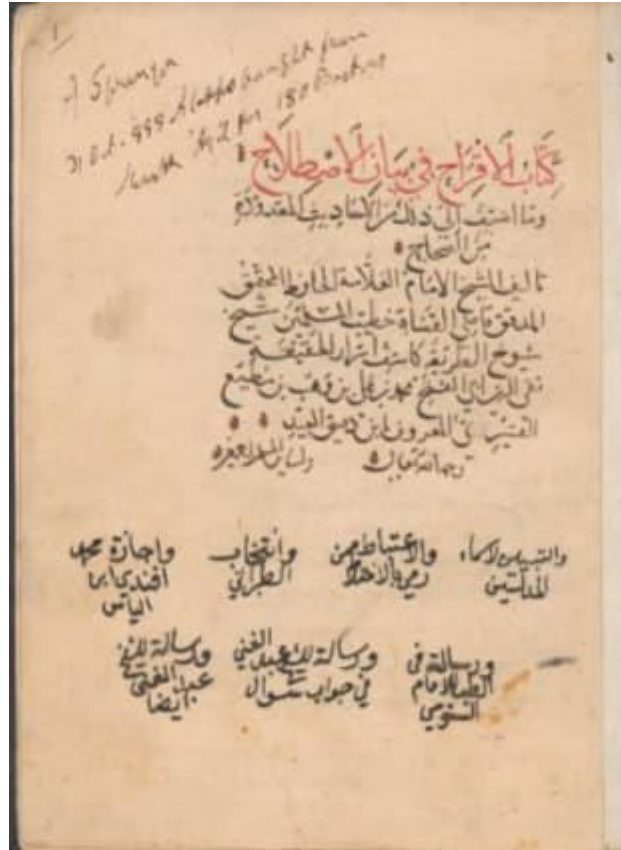 1
A Sprenger
Aleppo bought from
for 180 Piasters
كتاب الاقتراح في بيان الاصطلاح
وما اضيف الى ذلك من الاحاديث المعدودة
من الصحاح
تاليف الشيخ الامام العلامة الحافظ المحقق
المدقق قاضي القضاة خطيب المسلمين شيخ
شيوخ الطريقة كاشف اسرار الحقيقة
تقي الدين ابي الفتح محمد بن علي بن وهب بن مطيع
القشيري المعروف بابن دقيق العيد
رحمه الله تعالى
والتبيين لاسماء المدلسين
والاغتباط بمن رمي بالاختلاط
وانتخاب الطبراني
واجازة محمد افندي ابي الياس
ورسالة في الطب للامام السنوسي
ورسالة للشيخ عبد الغني في جواب سوال
ورسالة للشيخ عبد الغني ايضا